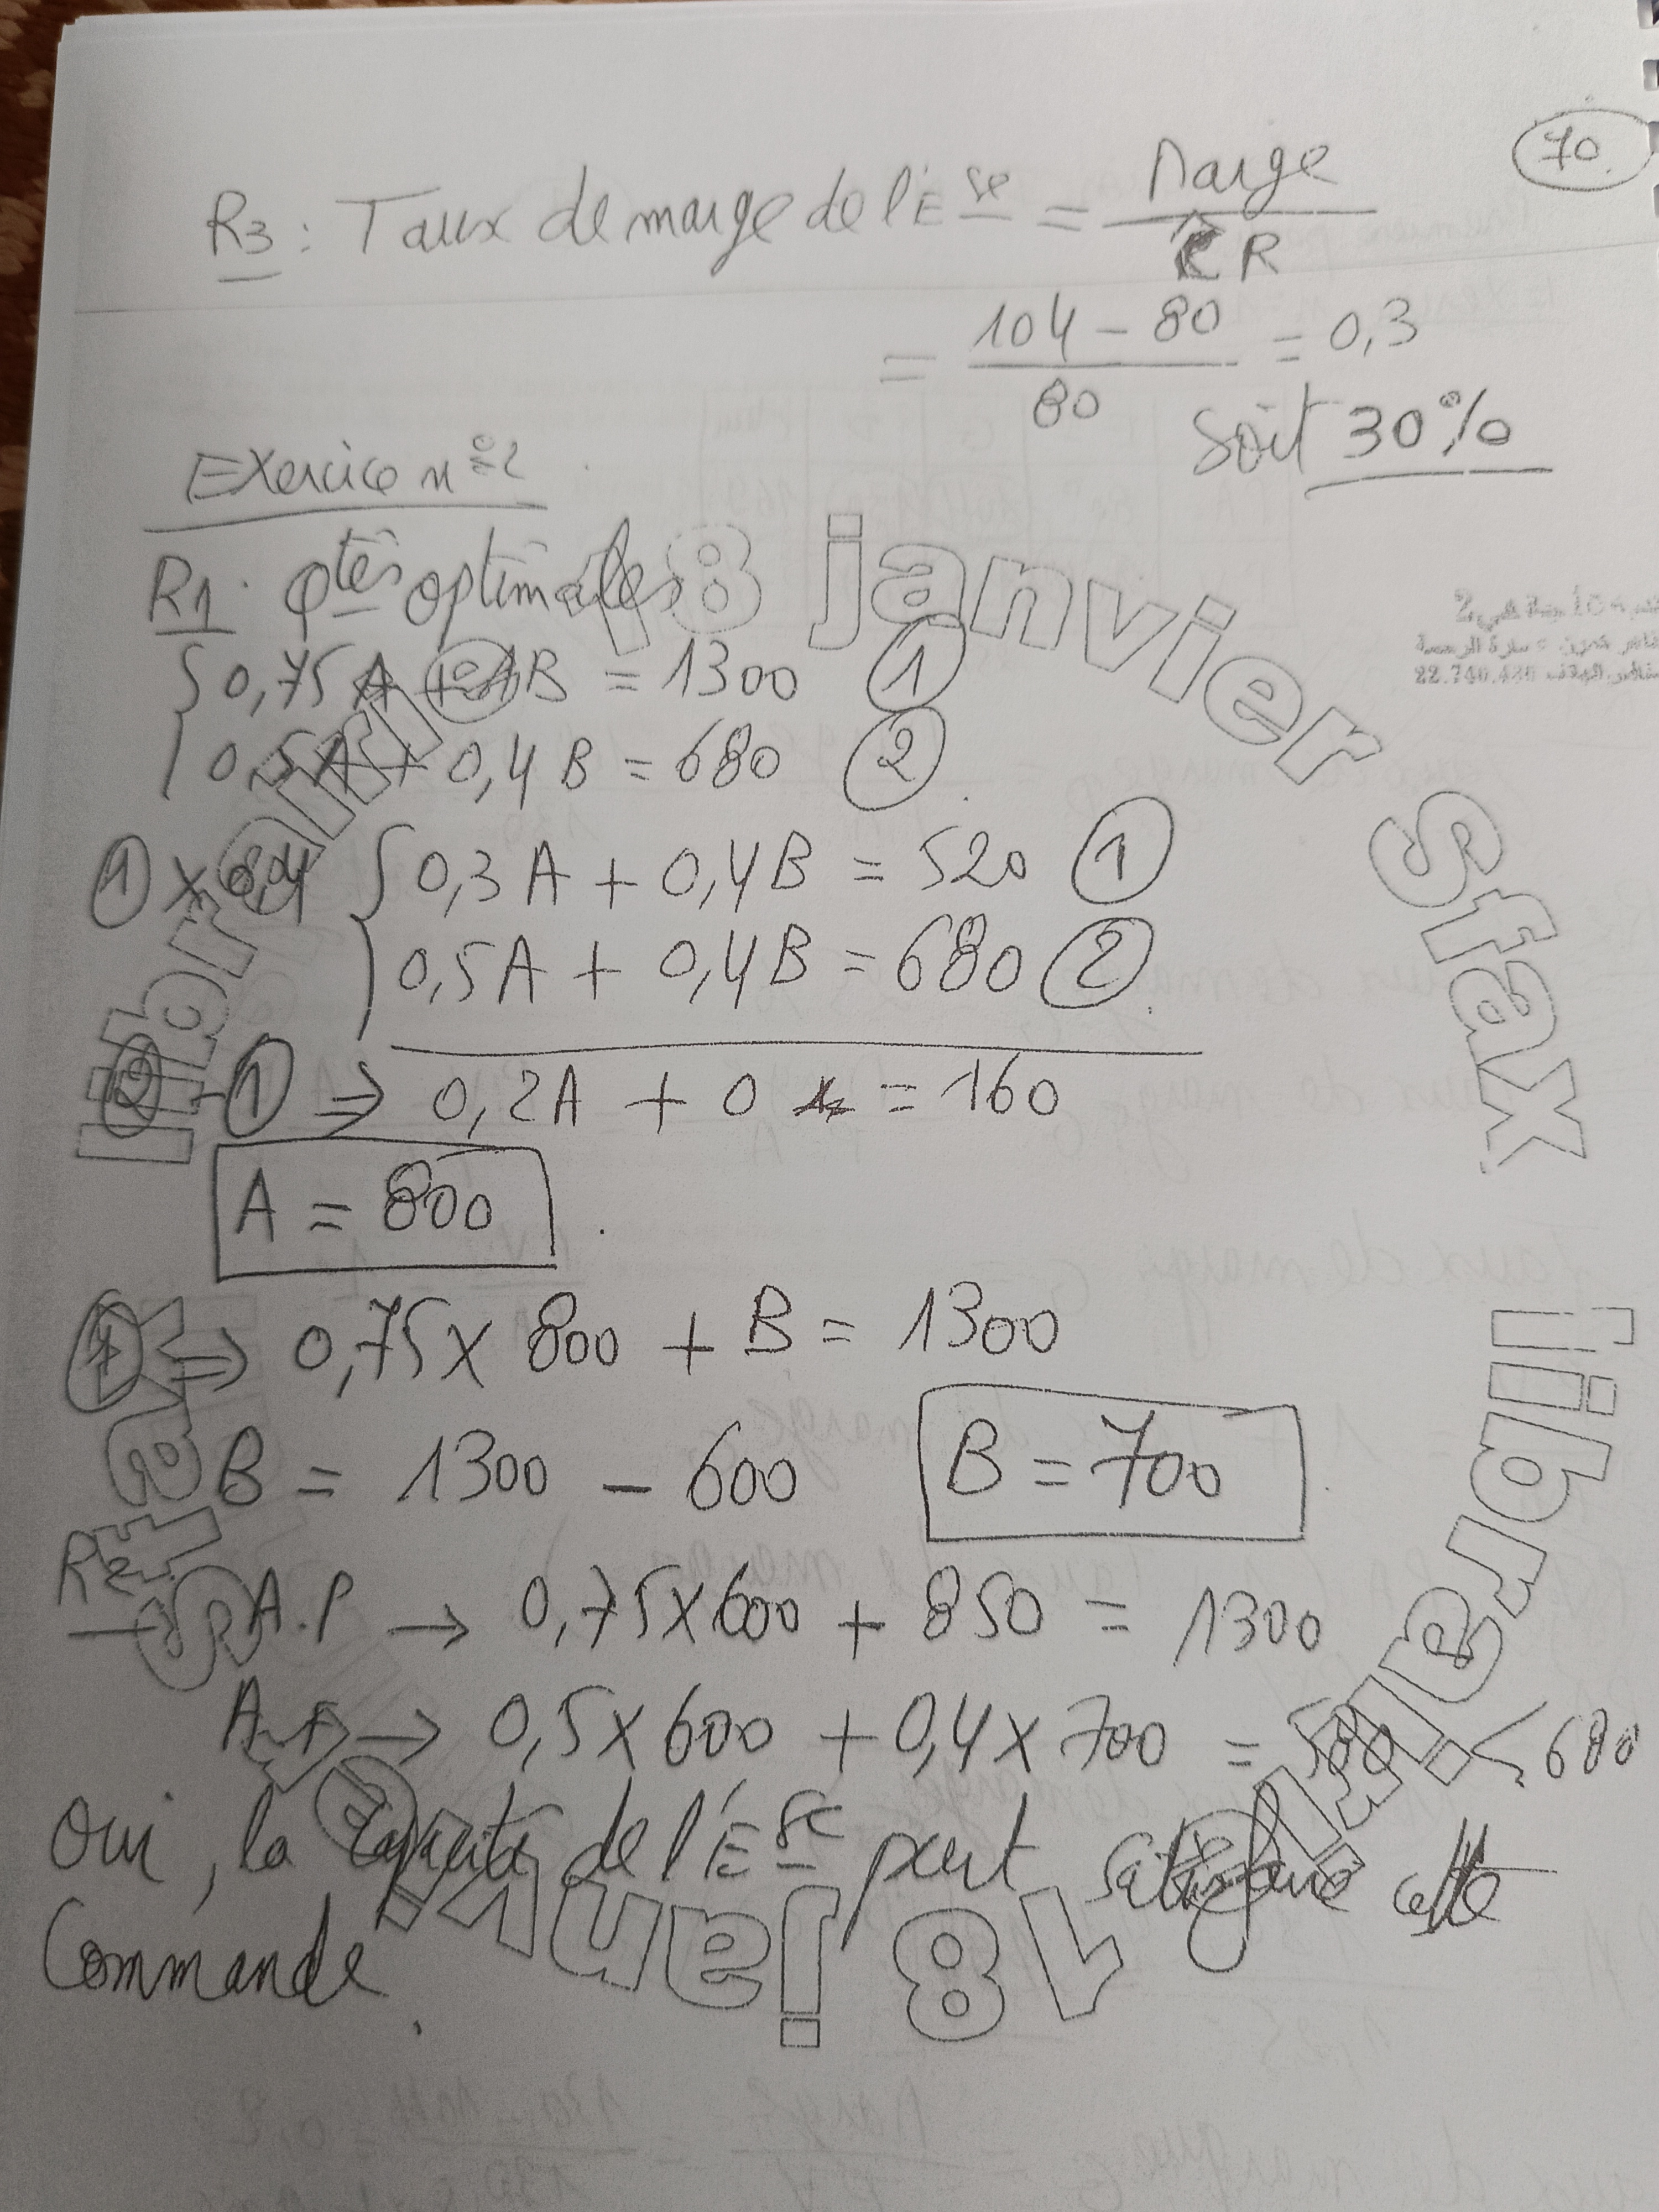 70
R3 : Taux de marge de l'Ese = Marge / CR
= 104 - 80 / 80 = 0,3
Soit 30%
Exercice n°2
R1 : Qtés optimales
{ 0,75 A + 1B = 1300 (1)
0,5A + 0,4B = 680 (2)
(1) x 0,4 { 0,3A + 0,4B = 520 (1)
0,5A + 0,4B = 680 (2)
(2) - (1) ⇒ 0,2A + 0 = 160
A = 800
(1) ⇒ 0,75 x 800 + B = 1300
B = 1300 - 600 B = 700
R2 A.P → 0,75x600 + 850 = 1300
A.F → 0,5x600 + 0,4x700 = 580 < 680
Oui, la capacité de l'Ese peut satisfaire cette
Commande.
librairie 18 janvier Sfax
librairie 18 janvier Sfax
22.740.486